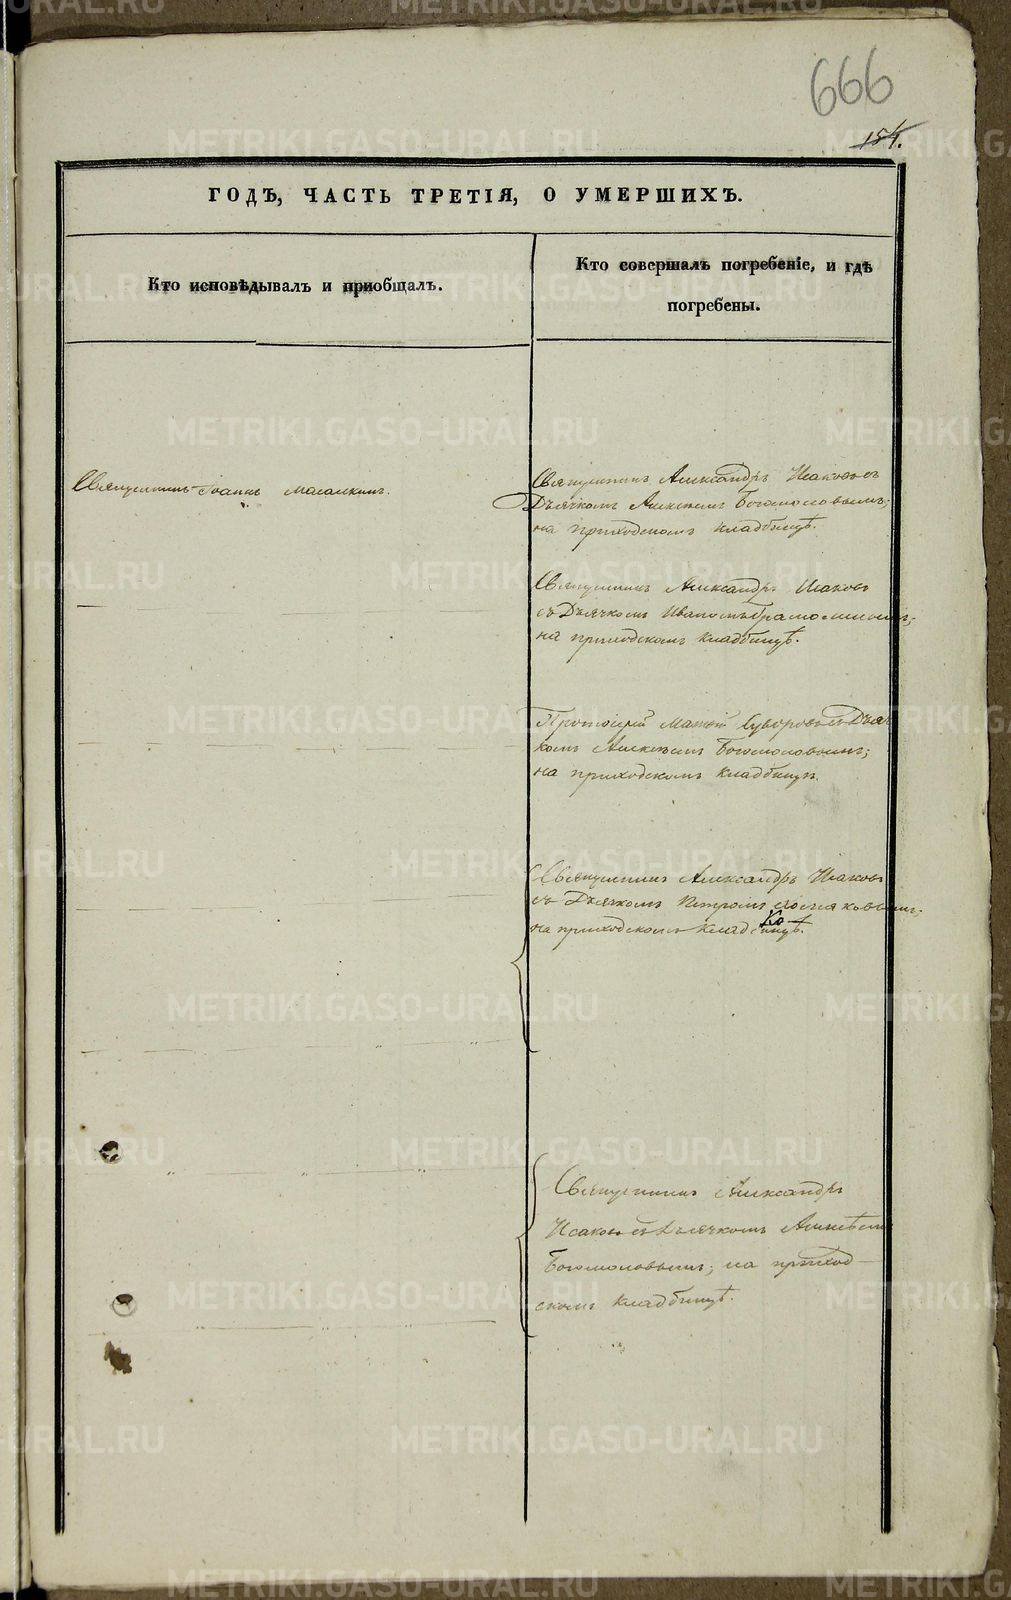 666
154.
ГОДЪ, ЧАСТЬ ТРЕТІЯ, О УМЕРШИХЪ.
Кто исповѣдывалъ и пріобщалъ.
Кто совершалъ погребеніе, и гдѣ
погребены.
Священникъ Іоаннъ
Священникъ Александръ Исаковъ съ
Дьячкомъ Алексѣемъ Богомоловымъ;
на приходскомъ кладбищѣ.
Священникъ Александръ Исаковъ
съ Дьячкомъ Иваномъ
на приходскомъ кладбищѣ.
Протоіерей Матѳій Суворовъ съ Дьяч
комъ Алексѣемъ Богомоловымъ;
на приходскомъ кладбищѣ.
Священникъ Александръ Исаковъ
съ Дьячкомъ Петромъ
на приходскомъ кладбищѣ.
Священникъ Александръ
Исаковъ съ Дьячкомъ Алексѣемъ
Богомоловымъ; на приход-
скомъ кладбищѣ.
METRIKI.GASO-URAL.RU